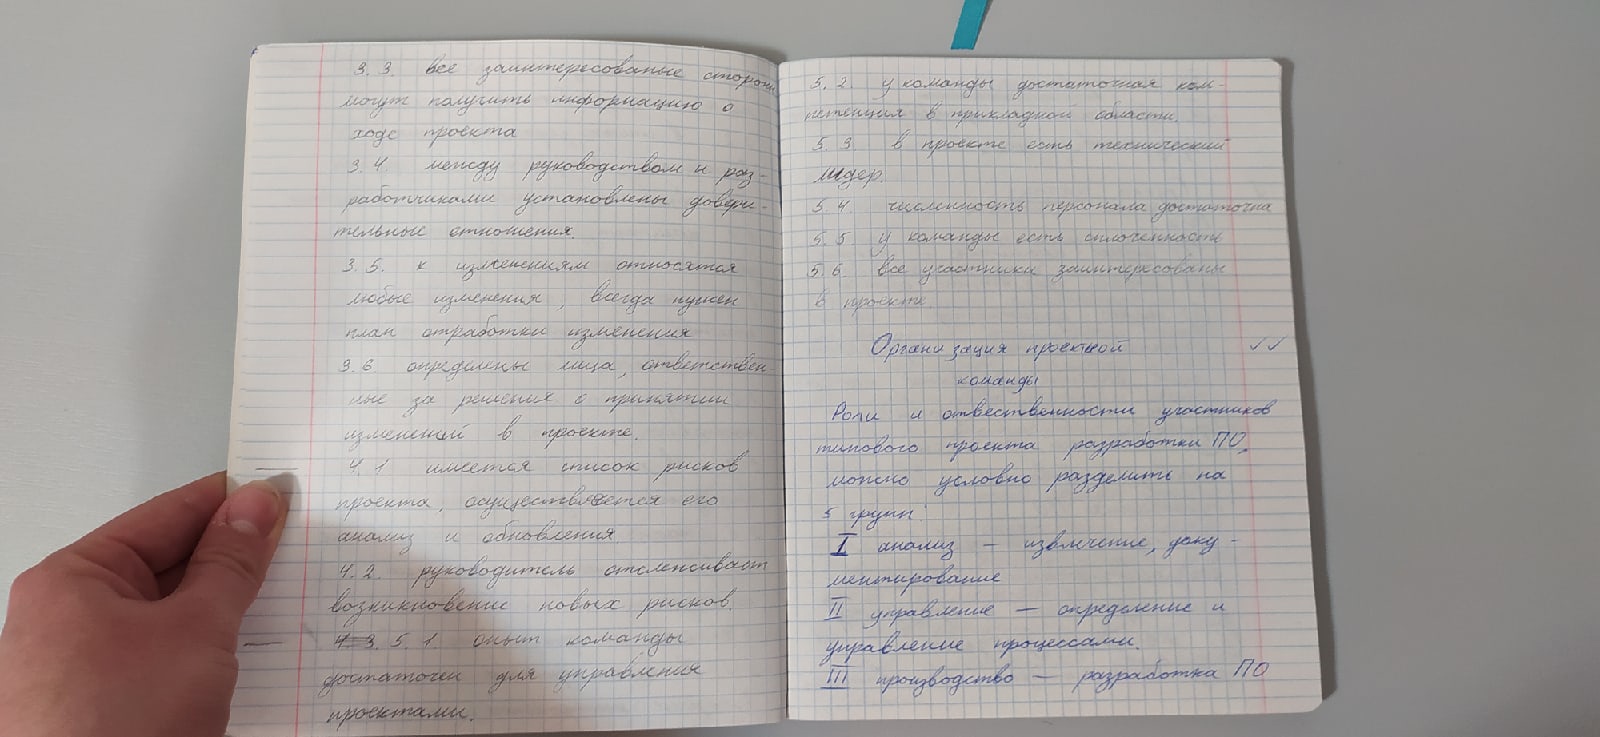 3.3. все заинтересованые стороны
могут получить информацию о
ходе проекта
3.4. между руководством и раз-
работчиками установлены довери-
тельные отношения.
3.5. к изменениям относятся
любые изменения, всегда нужен
план отработки изменения
3.6 определены лица, ответствен
ные за решение о принятии
изменений в проекте.
4.1 имеется список рисков
проекта, осуществляется его
анализ и обновления.
4.2. руководитель отслеживает
возникновение новых рисков.
4.3. 5.1. опыт команды
достаточен для управления
проектами.
5.2 у команды достаточная ком-
петенция в прикладной области.
5.3 в проекте есть технический
лидер.
5.4. численность персонала достаточна
5.5 у команды есть сплоченность
5.6 все участники заинтересованы
в проекте.
Организация проектной
команды
Роли и отвественности участников
типового проекта разработки ПО,
можно условно разделить на
5 групп:
I анализ – извлечение, доку-
ментирование
II управление – определение и
управление процессами.
III производство – разработка ПО